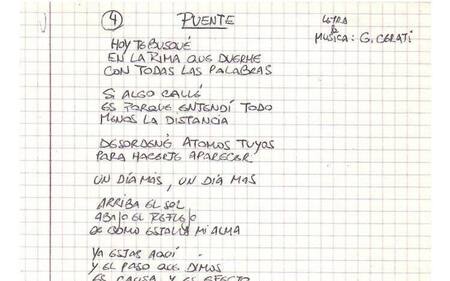 4 PUENTE
LETRA
&
MUSICA: G. CERATI
HOY TE BUSQUÉ
EN LA RIMA QUE DUERME
CON TODAS LAS PALABRAS
SI ALGO CALLÉ
ES PORQUE ENTENDÍ TODO
MENOS LA DISTANCIA
DESORDENÉ ATOMOS TUYOS
PARA HACERTE APARECER
UN DÍA MAS, UN DIA MAS
ARRIBA EL SOL
ABAJO EL REFLEJO
DE COMO ESTALLA MI ALMA
YA ESTAS AQUÍ
Y EL PASO QUE DIMOS
ES CAUSA Y ES EFECTO